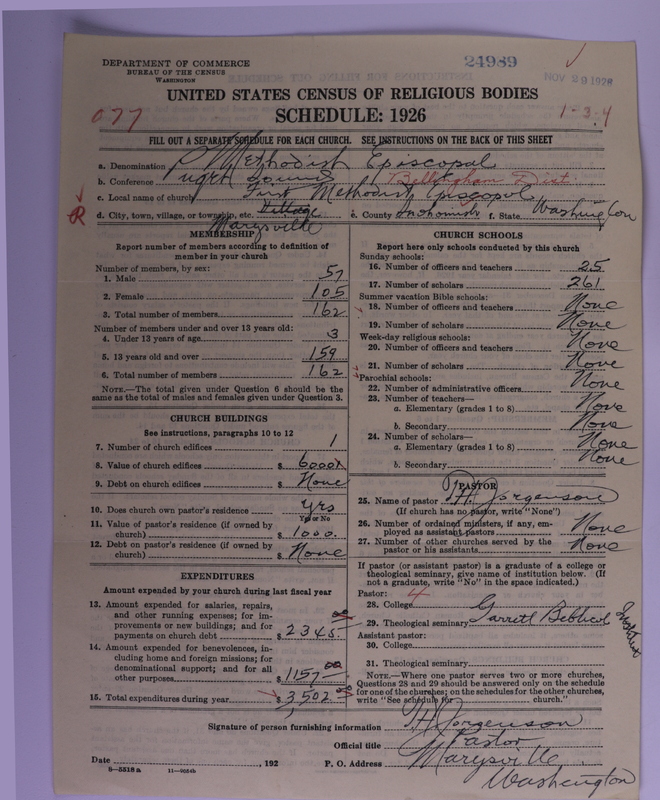 DEPARTMENT OF COMMERCE
BUREAU OF THE CENSUS
WASHINGTON
24989
NOV 29 1926
UNITED STATES CENSUS OF RELIGIOUS BODIES
077
SCHEDULE: 1926
1-3-4
FILL OUT A SEPARATE SCHEDULE FOR EACH CHURCH. SEE INSTRUCTIONS ON THE BACK OF THIS SHEET
a. Denomination Methodist Episcopal
b. Conference Puget Sound Bellingham Dist.
c. Local name of church First Methodist Episcopal
d. City, town, village, or township, etc. Village Marysville e. County Snohomish f. State Washington
MEMBERSHIP
Report number of members according to definition of member in your church
Number of members, by sex:
1. Male 57
2. Female 105
3. Total number of members 162
Number of members under and over 13 years old:
4. Under 13 years of age 3
5. 13 years old and over 159
6. Total number of members 162
NOTE.—The total given under Question 6 should be the
same as the total of males and females given under Question 3.
CHURCH BUILDINGS
See instructions, paragraphs 10 to 12
7. Number of church edifices 1
8. Value of church edifices $ 6000
9. Debt on church edifices $ None
10. Does church own pastor's residence yrs
Yes or No
11. Value of pastor's residence (if owned by
church) $ 1000.
12. Debt on pastor's residence (if owned by
church) $ None
EXPENDITURES
Amount expended by your church during last fiscal year
13. Amount expended for salaries, repairs,
and other running expenses; for im-
provements or new buildings; and for
payments on church debt $ 2345.00
14. Amount expended for benevolences, in-
cluding home and foreign missions; for
denominational support; and for all
other purposes $ 1157 00
15. Total expenditures during year $ 3,502 00
CHURCH SCHOOLS
Report here only schools conducted by this church
Sunday schools:
16. Number of officers and teachers 25
17. Number of scholars 261
Summer vacation Bible schools:
18. Number of officers and teachers None
19. Number of scholars None
Week-day religious schools:
20. Number of officers and teachers None
21. Number of scholars None
Parochial schools:
22. Number of administrative officers None
23. Number of teachers—
a. Elementary (grades 1 to 8) None
b. Secondary None
24. Number of scholars—
a. Elementary (grades 1 to 8) None
b. Secondary None
PASTOR
25. Name of pastor T.H. Jorgenson
(If church has no pastor, write "None")
26. Number of ordained ministers, if any, em-
ployed as assistant pastors None
27. Number of other churches served by the
pastor or his assistants None
If pastor (or assistant pastor) is a graduate of a college or
theological seminary, give name of institution below. (If
not a graduate, write "No" in the space indicated.)
Pastor: 4
28. College
29. Theological seminary Garrett Biblical Institute
Assistant pastor:
30. College
31. Theological seminary
NOTE.—Where one pastor serves two or more churches,
Questions 28 and 29 should be answered only on the schedule
for one of the churches; on the schedules for the other churches,
write "See schedule for church."
Signature of person furnishing information T.H. Jorgenson
Official title Pastor
Date , 192 P. O. Address Marysville
Washington
8-5518a 11-9034b